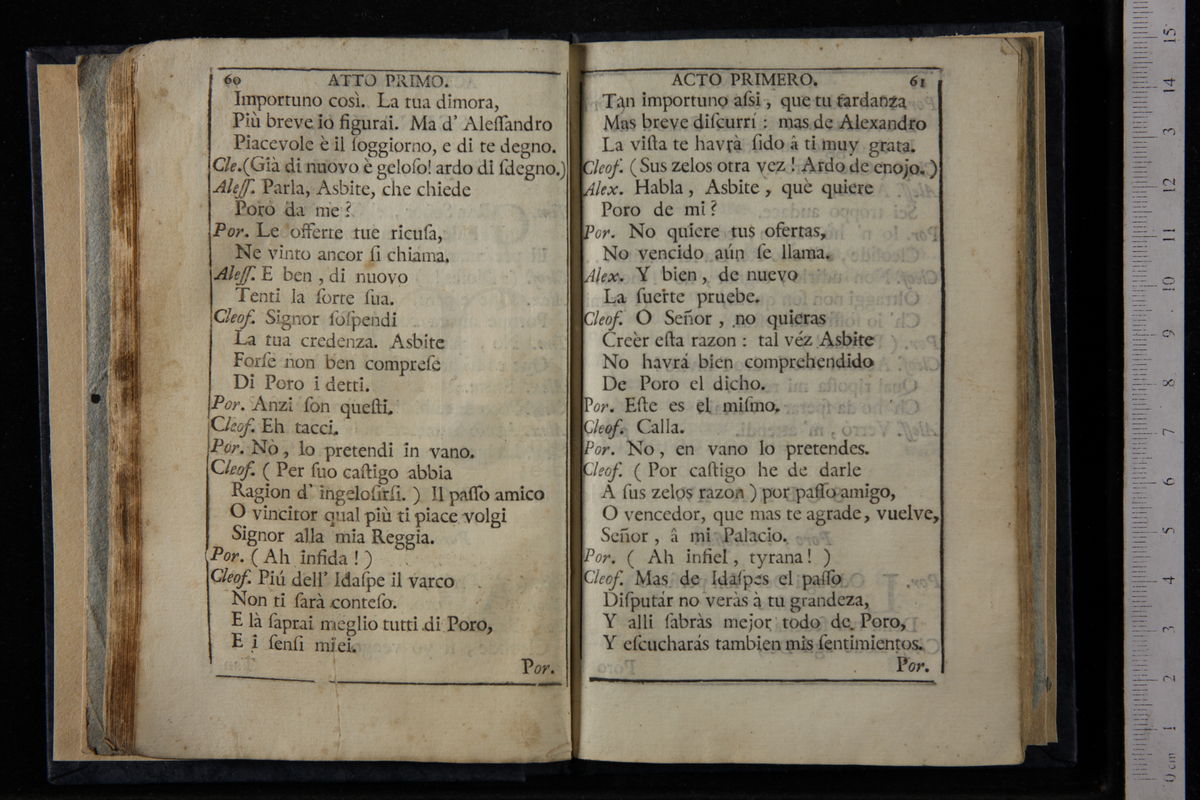 60 ATTO PRIMO.
Importuno così. La tua dimora,
Più breve io figurai. Ma d' Aleſſandro
Piacevole è il ſoggiorno, e di te degno.
Cle.(Già di nuovo è geloſo! ardo di ſdegno.)
Aleſſ. Parla, Asbite, che chiede
Poro da me?
Por. Le offerte tue ricuſa,
Ne vinto ancor ſi chiama.
Aleſſ. E ben, di nuovo
Tenti la ſorte ſua.
Cleof. Signor ſoſpendi
La tua credenza. Asbite
Forſe non ben compreſe
Di Poro i detti.
Por. Anzi ſon queſti.
Cleof. Eh tacci.
Por. Nò, lo pretendi in vano.
Cleof. ( Per ſuo caſtigo abbia
Ragion d' ingeloſirſi. ) Il paſſo amico
O vincitor qual più ti piace volgi
Signor alla mia Reggia.
Por. ( Ah infida ! )
Cleof. Piú dell' Idaſpe il varco
Non ti ſarà conteſo.
E là ſaprai meglio tutti di Poro,
E i ſenſi miei.
Por.
ACTO PRIMERO. 61
Tan importuno aſsi, que tu tardanza
Mas breve diſcurrí : mas de Alexandro
La viſta te havrà ſido â ti muy grata.
Cleof. ( Sus zelos otra vez ! Ardo de enojo. )
Alex. Habla, Asbite, què quiere
Poro de mi?
Por. No quiere tus ofertas,
No vencido aún ſe llama.
Alex. Y bien, de nuevo
La ſuerte pruebe.
Cleof. O Señor, no quieras
Creèr eſta razon : tal véz Asbite
No havrá bien comprehendido
De Poro el dicho.
Por. Eſte es el miſmo.
Cleof. Calla.
Por. No, en vano lo pretendes.
Cleof. ( Por caſtigo he de darle
A ſus zelos razon ) por paſſo amigo,
O vencedor, que mas te agrade, vuelve,
Señor, â mi Palacio.
Por. ( Ah infiel, tyrana! )
Cleof. Mas de Idaſpes el paſſo
Diſputár no veràs à tu grandeza,
Y alli ſabràs mejor todo de Poro,
Y eſcucharás tambien mis ſentimientos.
Por.
15
14
13
12
11
10
9
8
7
6
5
4
3
2
1
0 cm